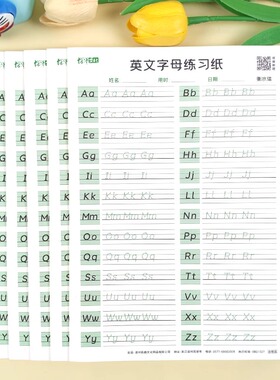 英文字母练习纸
姓名 用时 日期
Aa Aa Aa Aa Bb Bb Bb Bb
Cc Cc Cc Cc Dd Dd Dd Dd
Ee Ee Ee Ee Ff Ff Ff Ff
Gg Gg Gg Gg Hh Hh Hh Hh
Ii Ii Ii Ii Jj Jj Jj Jj
Kk Kk Kk Kk Ll Ll Ll Ll
Mm Mm Mm Mm Nn Nn Nn Nn
Oo Oo Oo Oo Pp Pp Pp Pp
Qq Qq Qq Qq Rr Rr Rr Rr
Ss Ss Ss Ss Tt Tt Tt Tt
Uu Uu Uu Uu Vv Vv Vv Vv
Ww Ww Ww Ww Xx Xx Xx Xx
Yy Yy Yy Yy Zz Zz Zz Zz